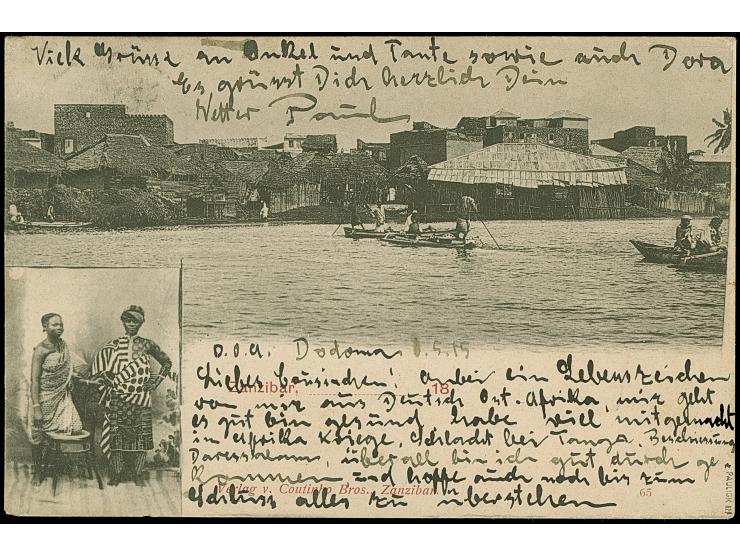 Viele Grüsse an Onkel und Tante sowie auch Dora
Es grüsst Dich herzlich Dein
Vetter Paul
D.O.A. Dodoma 1.5.15
Zanzibar, 18
Liebes Cousinchen! Anbei ein Lebenszeichen
von mir aus Deutsch Ost-Afrika, mir geht
es gut bin gesund habe viel mitgemacht
in Afrika Kriege, Schlacht bei Tanga, Beschiessung
Daressalam, überall bin ich gut durch ge
kommen, und hoffe auch noch bis zum
Schluss alles zu überstehen
Verlag v. Coutinho Bros., Zanzibar.
65
PAULIGK